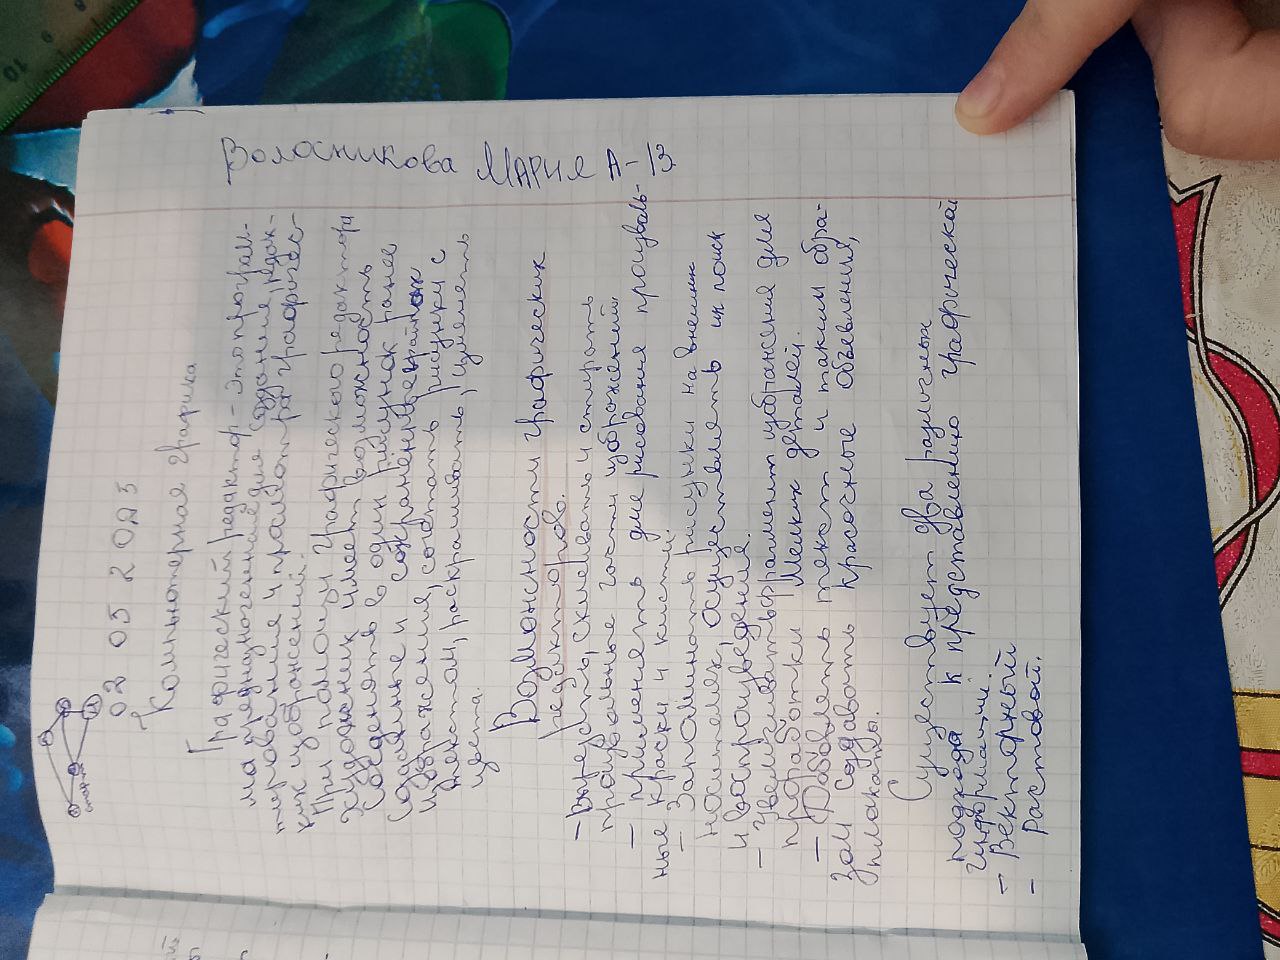 02 05 2025
Компьютерная графика
Графический редактор - это програм-
ма предназначенная для создания, редак-
тирования и просмотра графичес-
ких изображений.
При помощи графического редактора
художник имеет возможность
соединять в один рисунок ранее
созданные и сохранённые
изображения, сочетать рисунки с
текстом, раскрашивать, изменять
цвета.
Возможности графических
редакторов.
- Вырезать, склеивать и стирать
произвольные части изображений.
- применять для рисования произволь-
ные краски и кисти.
- Запоминать рисунки на внешних
носителях, осуществлять их поиск
и воспроизведения.
- Увеличивать фрагмент изображения для
проработки мелких деталей.
- Добавлять текст и таким обра-
зом создавать красочные объявления,
плакаты.
Существует два различных
подхода к представлению графической
информации:
- Векторный
- Растовой.
Волосникова МАРИЯ А-13